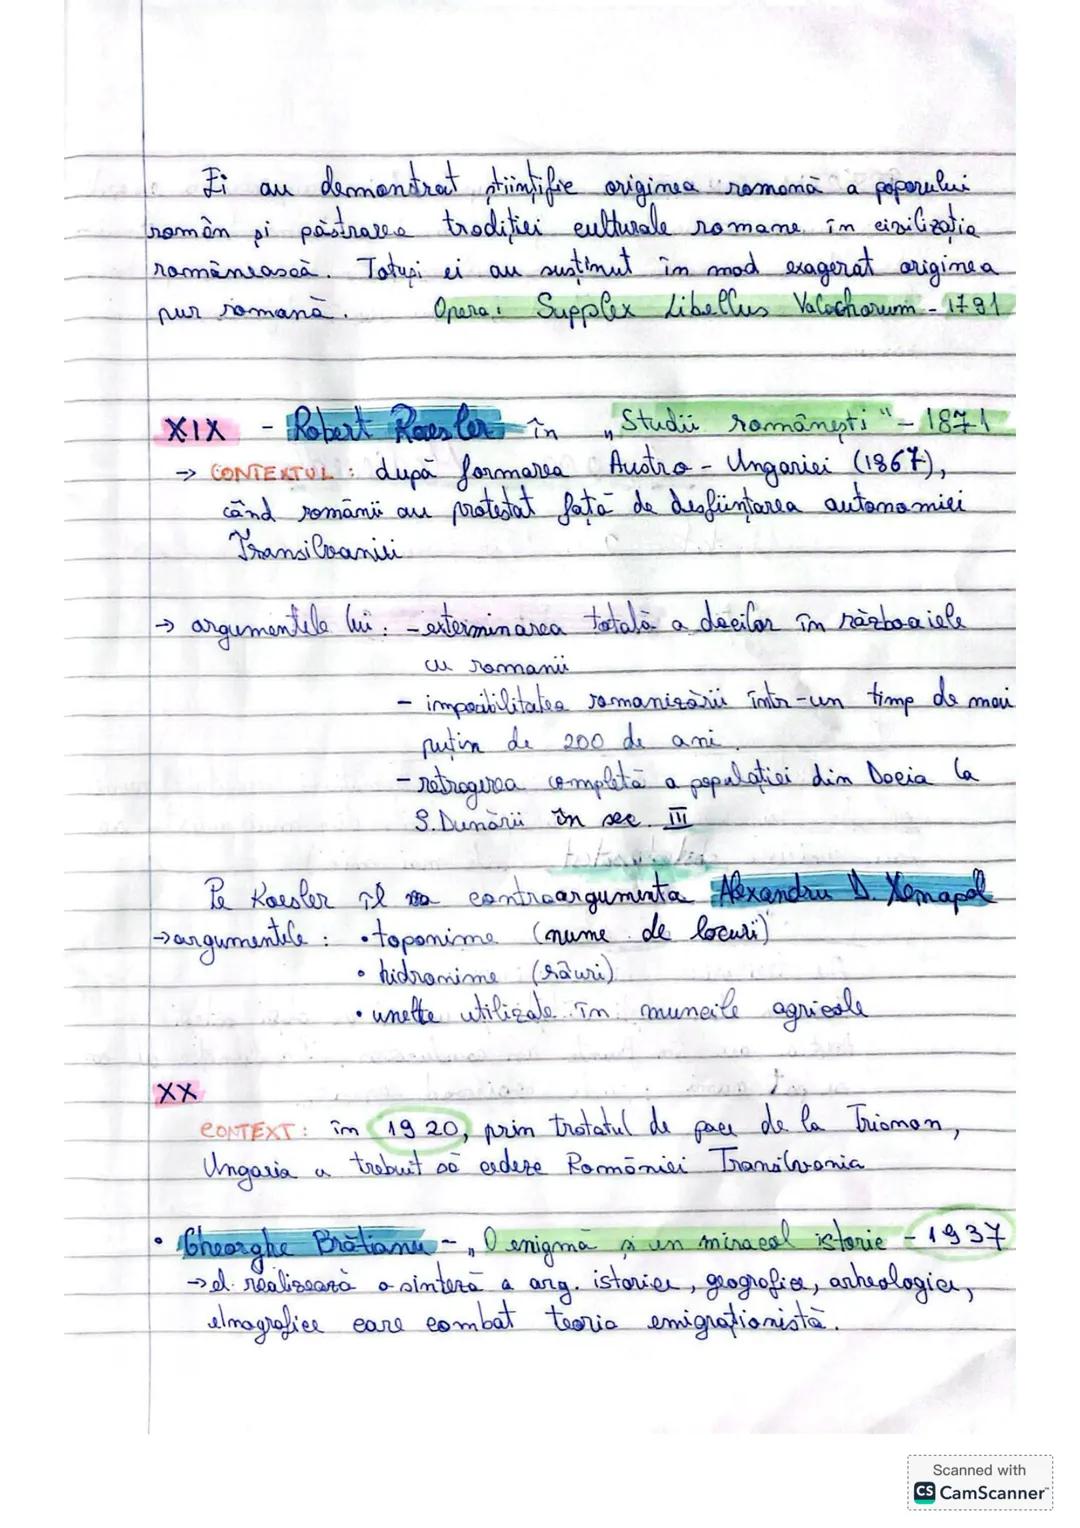 Ei au demonstrat științific originea romană a poporului
român și păstrarea tradiției culturale romane în civilizația
românească. Totuși ei au susținut în mod exagerat originea
pur romană. Opera: Supplex Libellus Valachorum - 1791
XIX - Robert Roesler în „Studii românești" - 1871
→ CONTEXTUL: după formarea Austro-Ungariei (1867),
când românii au protestat față de desființarea autonomiei
Transilvaniei
→ argumentele lui: - exterminarea totală a dacilor în războaiele
cu romanii
- imposibilitatea romanizării într-un timp de mai
puțin de 200 de ani.
- retragerea completă a populației din Dacia la
S. Dunării în sec. III
Pe Roesler îl va contraargumenta Alexandru D. Xenopol
→ argumentele: • toponime (nume de locuri)
• hidronime (râuri)
• unelte utilizate în muncile agricole
XX
CONTEXT: în 1920, prin tratatul de pace de la Trianon,
Ungaria a trebuit să cedeze României Transilvania
• Gheorghe Brătianu - „O enigmă și un miracol istoric - 1937
→ el realizează o sinteză a arg. istorice, geografice, arheologice,
etnografice care combat teoria emigraționistă.
Scanned with
CS CamScanner